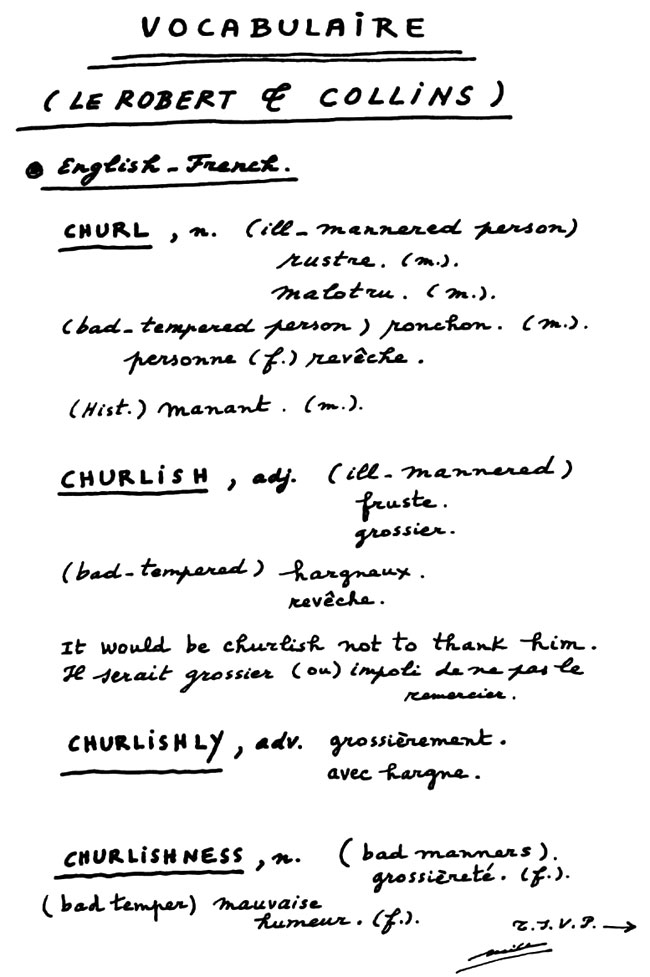 VOCABULAIRE
(LE ROBERT & COLLINS)
English - French.
CHURL, n. (ill-mannered person)
rustre. (m.).
malotru. (m.).
(bad-tempered person) ronchon. (m.).
personne (f.) revêche.
(Hist.) manant. (m.).
CHURLISH, adj. (ill-mannered)
fruste.
grossier.
(bad-tempered) hargneux.
revêche.
It would be churlish not to thank him.
Il serait grossier (ou) impoli de ne pas le
remercier.
CHURLISHLY, adv. grossièrement.
avec hargne.
CHURLISHNESS, n. (bad manners).
grossièreté. (f.).
(bad temper) mauvaise
humeur. (f.).
T.S.V.P. →